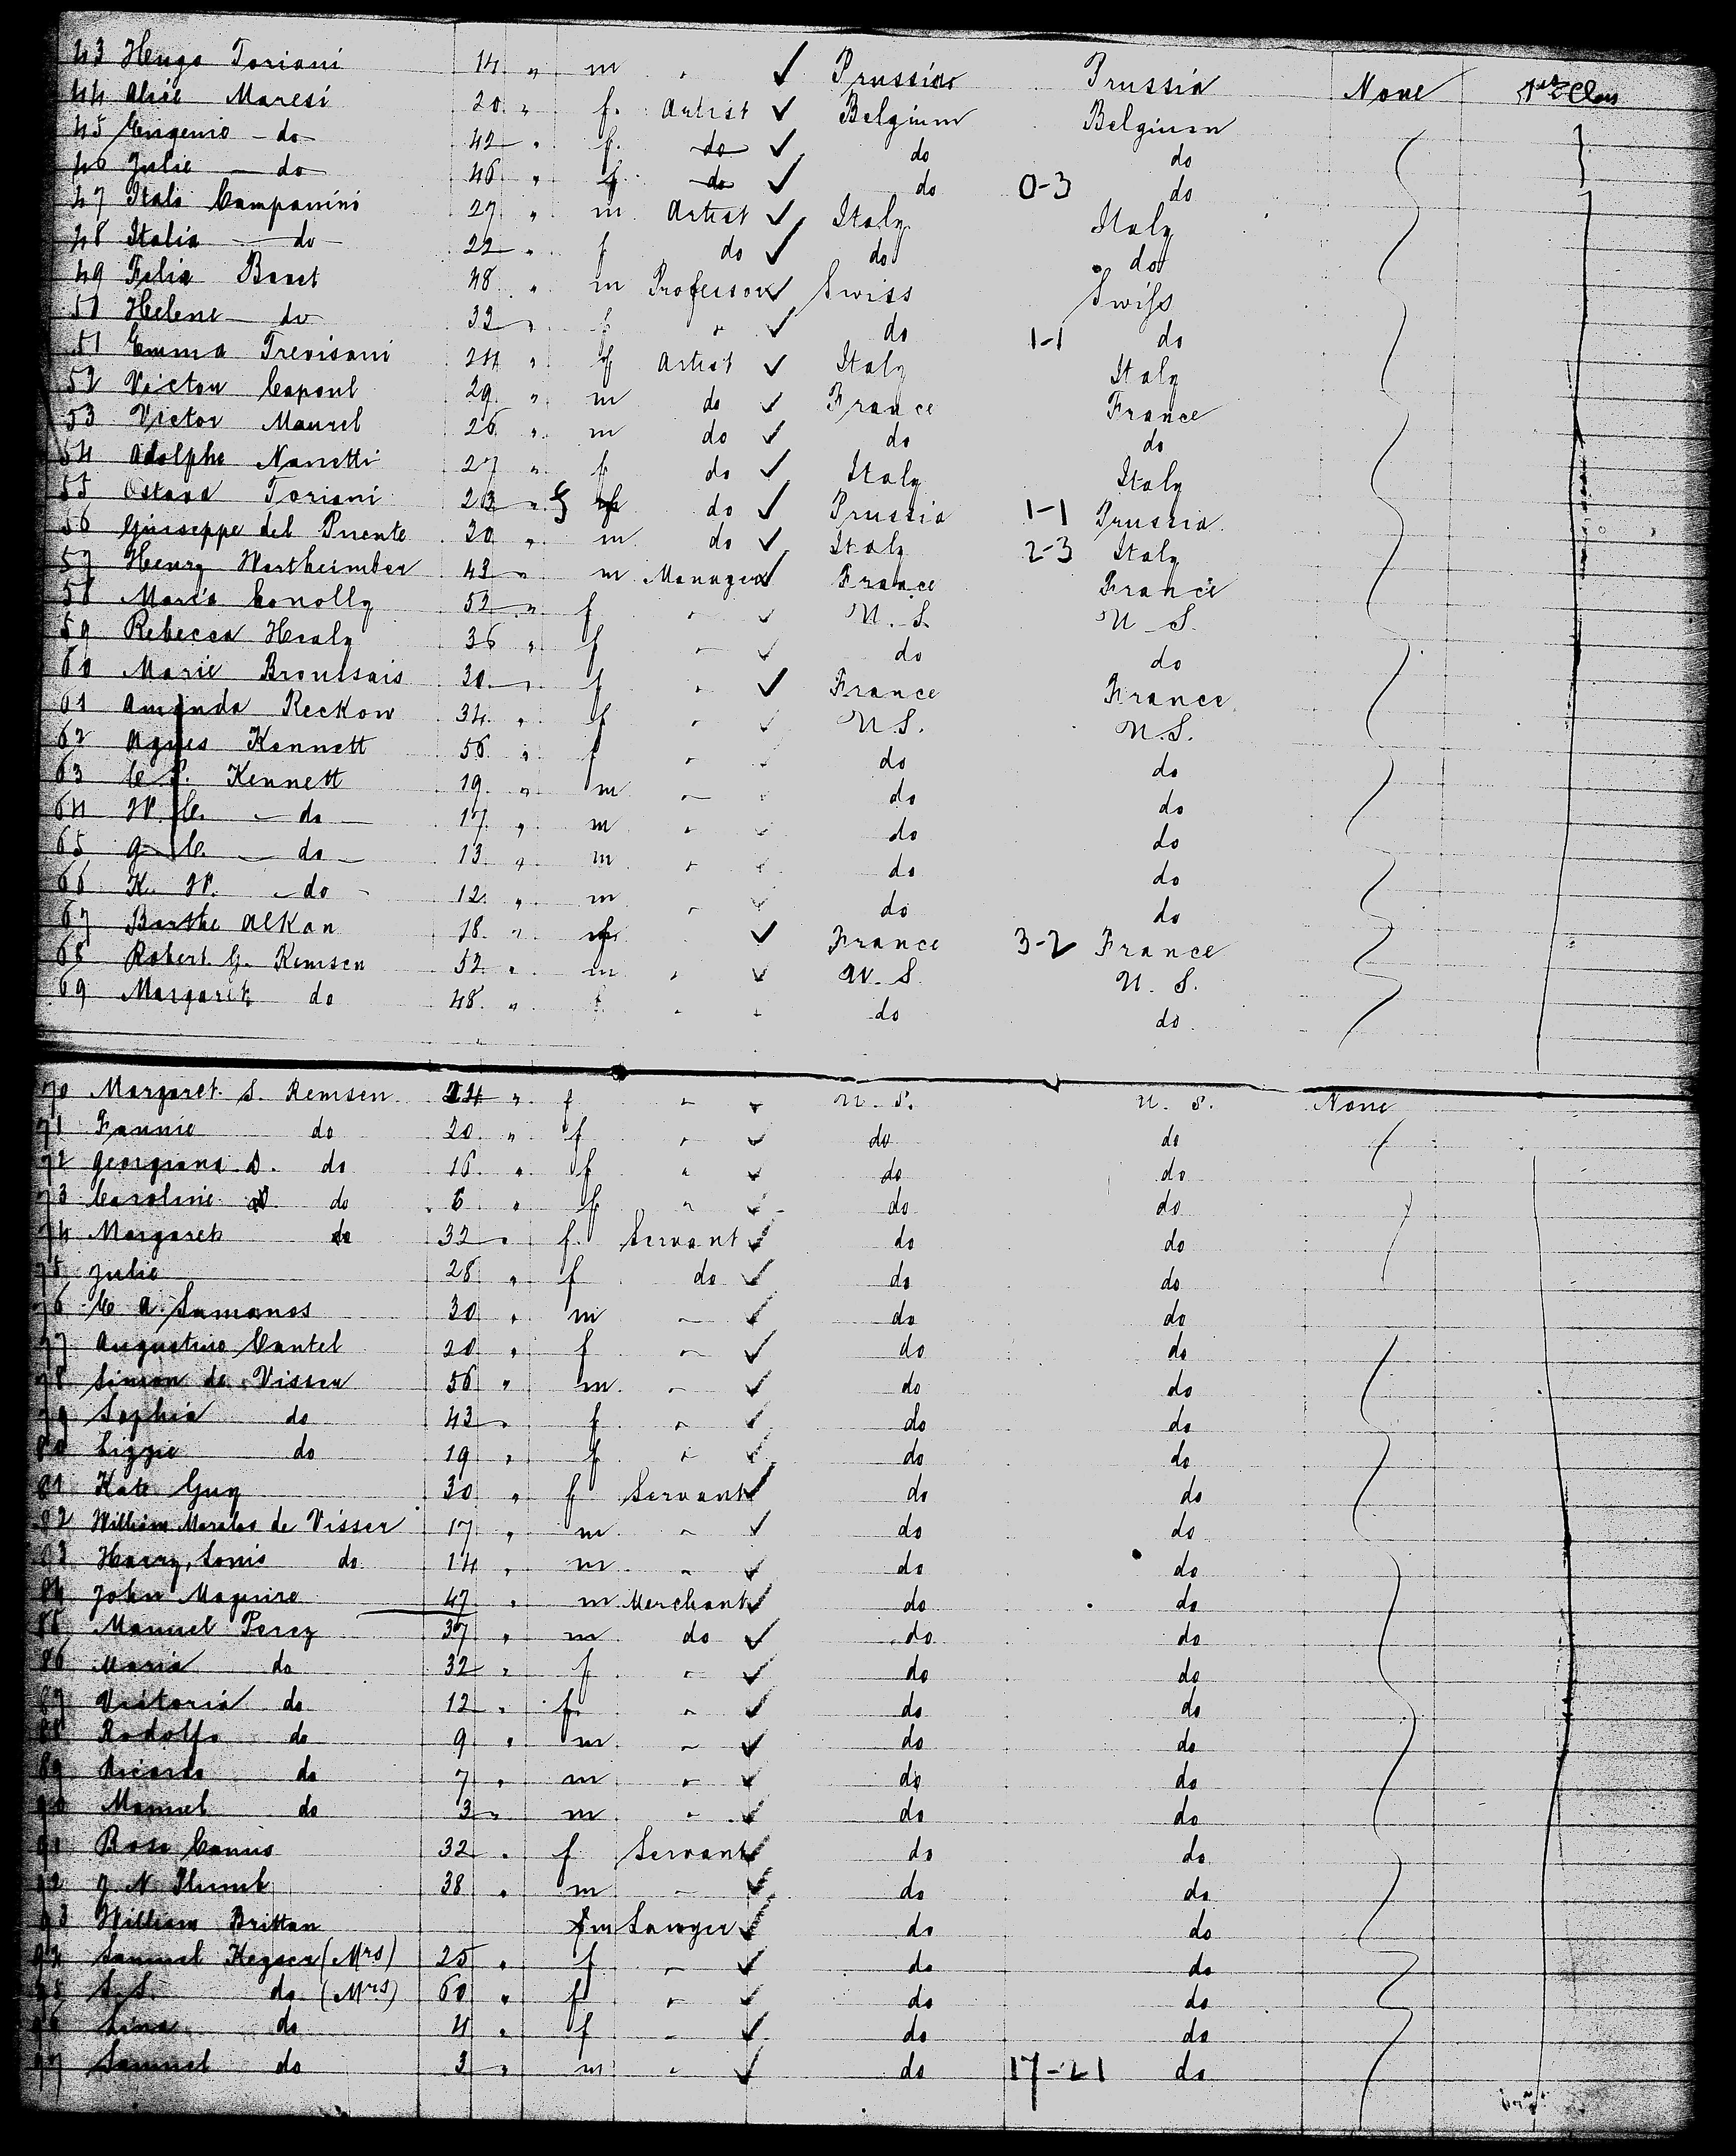 43 Hugo Toriani 14 " m " ✓ Prussia Prussia None 1st Class
44 Alice Maresi 20 " f. Artist ✓ Belgium Belgium
45 Eugenie - do - 42 " f. do ✓ do do
46 Julie - do - 46 " f do ✓ do 0-3 do
47 Italo Campanini 27 " m Artist ✓ Italy Italy
48 Italia - do - 22 " f do ✓ do do
49 Felix Banet 48 " m Professor ✓ Swiss Swiss
50 Helene - do 32 " f " ✓ do 1-1 do
51 Emma Trevisani 24 " f Artist ✓ Italy Italy
52 Victor Capoul 29 " m do ✓ France France
53 Victor Maurel 26 " m do ✓ do do
54 Adolphe Nanetti 27 " f do ✓ Italy Italy
55 Ostava Toriani 23 " f do ✓ Prussia 1-1 Prussia
56 Giuseppe del Puente 20 " m do ✓ Italy 2-3 Italy
57 Henry Wertheimber 43 " m Manager ✓ France France
58 Maria Conolly 52 " f " ✓ U. S. U. S.
59 Rebecca Healy 36 " f " ✓ do do
60 Marie Broussais 30 " f " ✓ France France
61 Amanda Reckow 34 " f " ✓ U.S. U.S.
62 Agnes Kennett 56 " f " ✓ do do
63 C S. Kennett 19 " m " ✓ do do
64 W. C. - do - 17 " m " ✓ do do
65 G C. - do - 13 " m " ✓ do do
66 K. W. - do - 12 " m " ✓ do do
67 Berthe Alkan 18 " f ✓ France 3-2 France
68 Robert G. Remsen 52 " m " ✓ U. S. U. S.
69 Margaret do 48 " f " ✓ do do
70 Margaret S. Remsen 24 " f " ✓ U. S. U. S. None
71 Fannie do 20 " f " ✓ do do
72 Georgiana D. do 16 " f " ✓ do do
73 Caroline do 6 " f " ✓ do do
74 Margaret do 32 " f. Servant ✓ do do
75 Julie 28 " f do ✓ do do
76 C A. Sumanos 30 " m " ✓ do do
77 Augustine Cantel 20 " f " ✓ do do
78 Simon de Visser 56 " m " ✓ do do
79 Sophia do 43 " f " ✓ do do
80 Lizzie do 19 " f " ✓ do do
81 Kate Guy 30 " f Servant ✓ do do
82 William Morales de Visser 17 " m " ✓ do do
83 Harry, Louis do 14 " m " ✓ do do
84 John Maguire 47 " m Merchant ✓ do do
85 Manuel Perez 37 " m do ✓ do do
86 Maria do 32 " f " ✓ do do
87 Victoria do 12 " f. " ✓ do do
88 Rodolfo do 9 " m " ✓ do do
89 Ricardo do 7 " m " ✓ do do
90 Manuel do 3 " m " ✓ do do
91 Rosa Camus 32 " f Servant ✓ do do
92 J N 38 " m " ✓ do do
93 William Brittan m Lawyer ✓ do do
94 Samuel Keyser (Mrs) 25 " f " ✓ do do
95 S. S. do (Mrs) 60 " f " ✓ do do
96 Lina do 4 " f " ✓ do do
97 Samuel do 3 " m " ✓ do 17-21 do